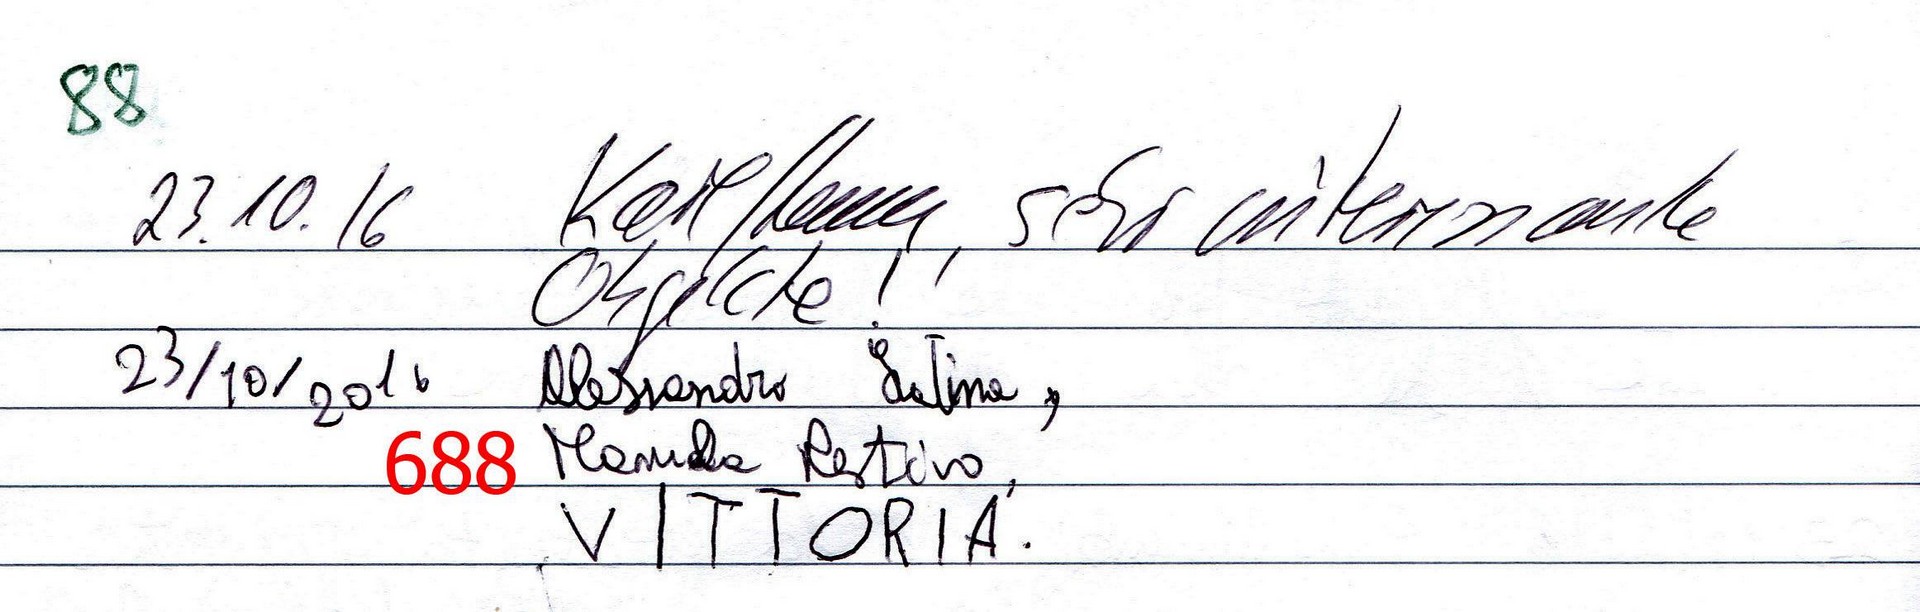 88
23.10.16 sehr interessante
Objekte!
23/10/2016 Alessandro Latina,
688 Manuela Restivo,
VITTORIA.